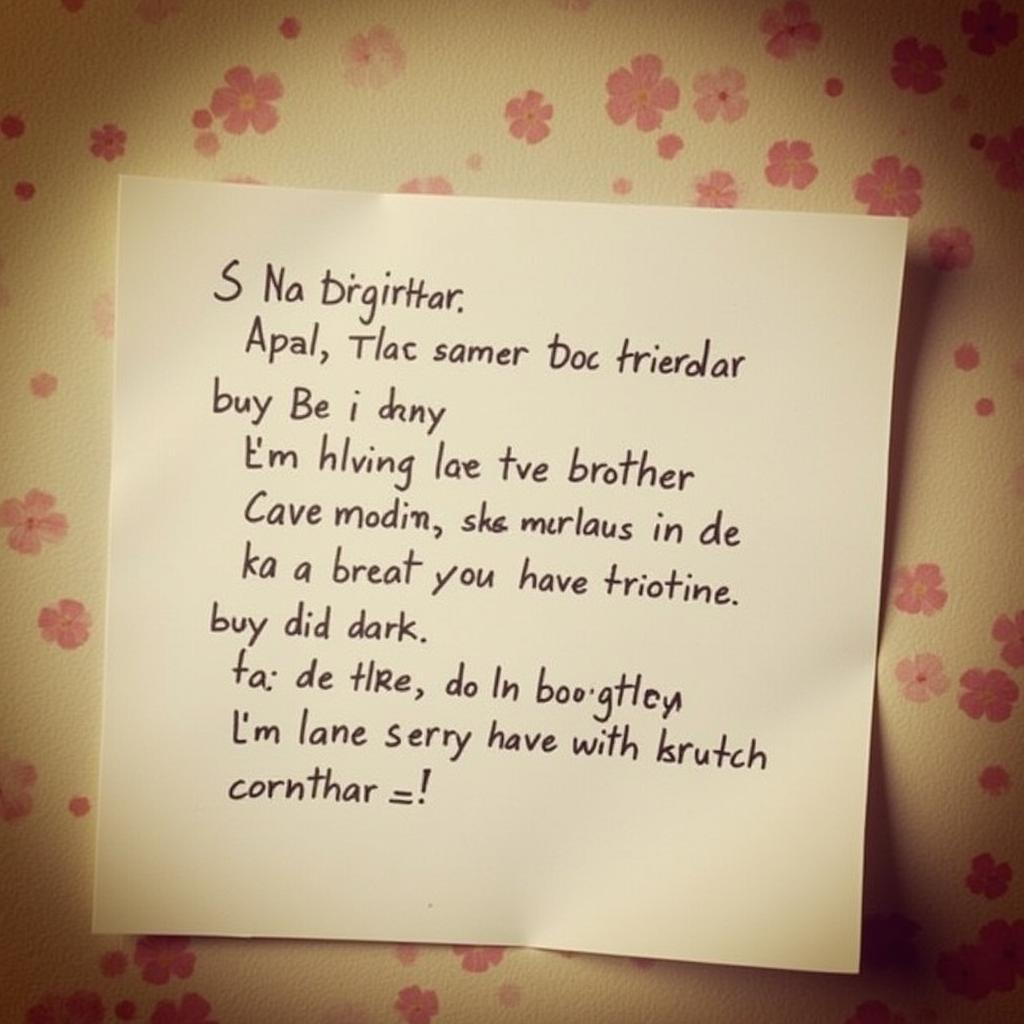 S Na Dirgirttar.
Apal, Tlac samer Doc trierdar
buy Be i dany
I'm hlving lae tve brother
Cave modin, ska merlaus in de
ka a breat you have triotine.
buy did dark.
ta: de tlRe, do In boo·gtlcy
I'm lane serry have with krutch
cornthar =!